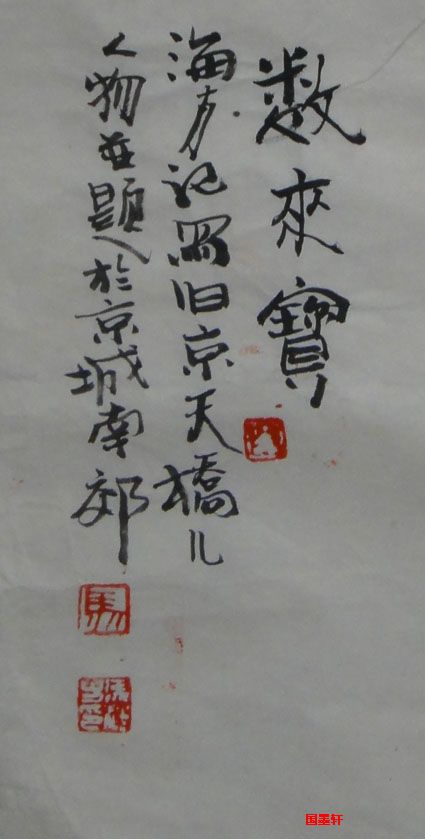 数來寶
海方记写旧京天橋儿
人物並题於京城南郊
馬
国墨轩